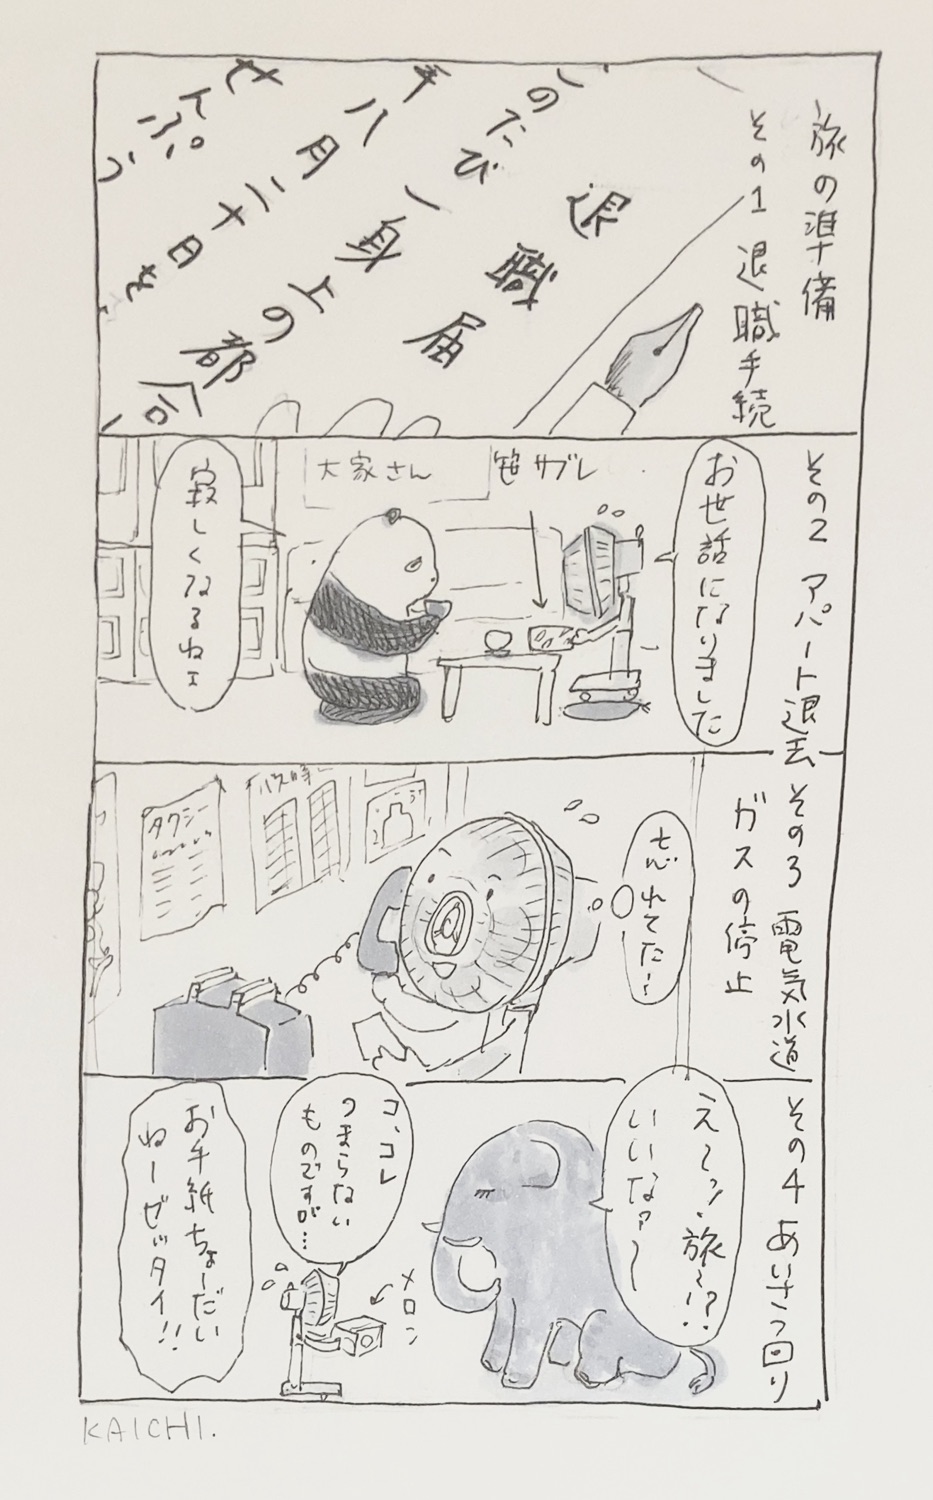 旅の準備
その1 退職手続
退職届
このたび一身上の都合
八月二十日を
せんぷう
その2 アパート退去
お世話になりました
笹サブレ
大家さん
寂しくなるねェ
その3 電気水道
ガスの停止
忘れてた!
タクシー
その4 あいさつ回り
え〜ッ、旅〜!?
いいなァ〜
コ、コレ
つまらない
ものですが…
メロン
お手紙ちょーだい
ねーゼッタイ!!
KAICHI.